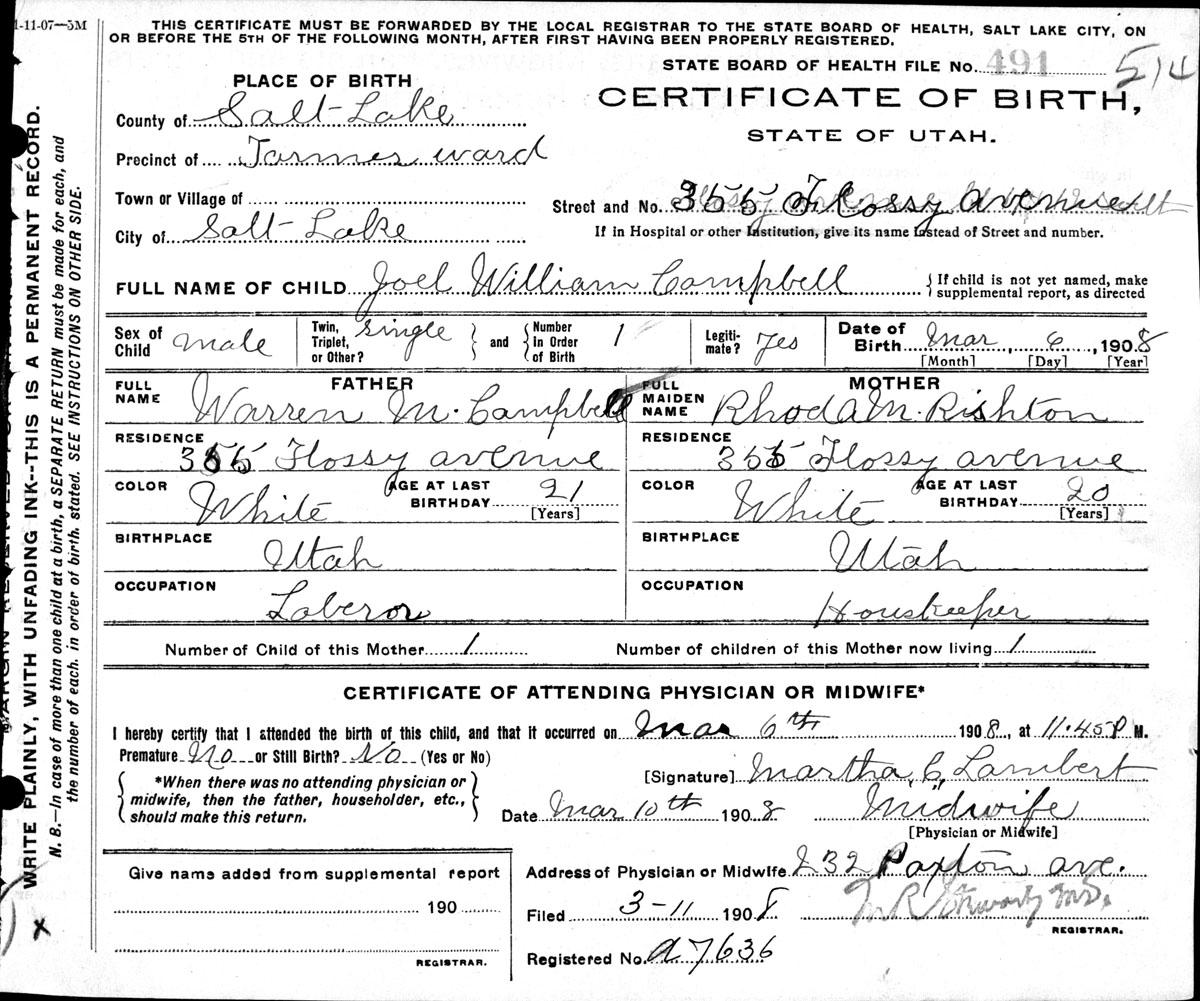 1-11-07—5M
THIS CERTIFICATE MUST BE FORWARDED BY THE LOCAL REGISTRAR TO THE STATE BOARD OF HEALTH, SALT LAKE CITY, ON
OR BEFORE THE 5TH OF THE FOLLOWING MONTH, AFTER FIRST HAVING BEEN PROPERLY REGISTERED.
STATE BOARD OF HEALTH FILE No. 491 514
PLACE OF BIRTH
CERTIFICATE OF BIRTH,
STATE OF UTAH.
County of Salt Lake
Precinct of Farmers ward
Town or Village of
City of Salt Lake
Street and No. 355 Flossy avenue
If in Hospital or other Institution, give its name instead of Street and number.
FULL NAME OF CHILD Joel William Campbell
If child is not yet named, make
supplemental report, as directed
Sex of Child male
Twin, Triplet, or Other? single
and Number In Order of Birth 1
Legiti-mate? yes
Date of Birth Mar 6, 1908
[Month] [Day] [Year]
FATHER
FULL NAME Warren M. Campbell
RESIDENCE 355 Flossy avenue
COLOR White
AGE AT LAST BIRTHDAY 21
[Years]
BIRTHPLACE Utah
OCCUPATION Laberor
MOTHER
FULL MAIDEN NAME Rhoda M. Rishton
RESIDENCE 355 Flossy avenue
COLOR White
AGE AT LAST BIRTHDAY 20
[Years]
BIRTHPLACE Utah
OCCUPATION Houskeeper
Number of Child of this Mother 1
Number of children of this Mother now living 1
CERTIFICATE OF ATTENDING PHYSICIAN OR MIDWIFE*
I hereby certify that I attended the birth of this child, and that it occurred on Mar 6th 1908, at 11.45 P M.
Premature No or Still Birth? No (Yes or No)
*When there was no attending physician or
midwife, then the father, householder, etc.,
should make this return.
[Signature] Martha C. Lambert
Date Mar 10th 1908
Midwife
[Physician or Midwife]
Give name added from supplemental report
190
REGISTRAR.
Address of Physician or Midwife 232 Paxton ave.
Filed 3-11 1908
M.D.
REGISTRAR.
Registered No. a7636
WRITE PLAINLY, WITH UNFADING INK--THIS IS A PERMANENT RECORD.
N. B.—In case of more than one child at a birth, a SEPARATE RETURN must be made for each, and
the number of each, in order of birth, stated. SEE INSTRUCTIONS ON OTHER SIDE.
x